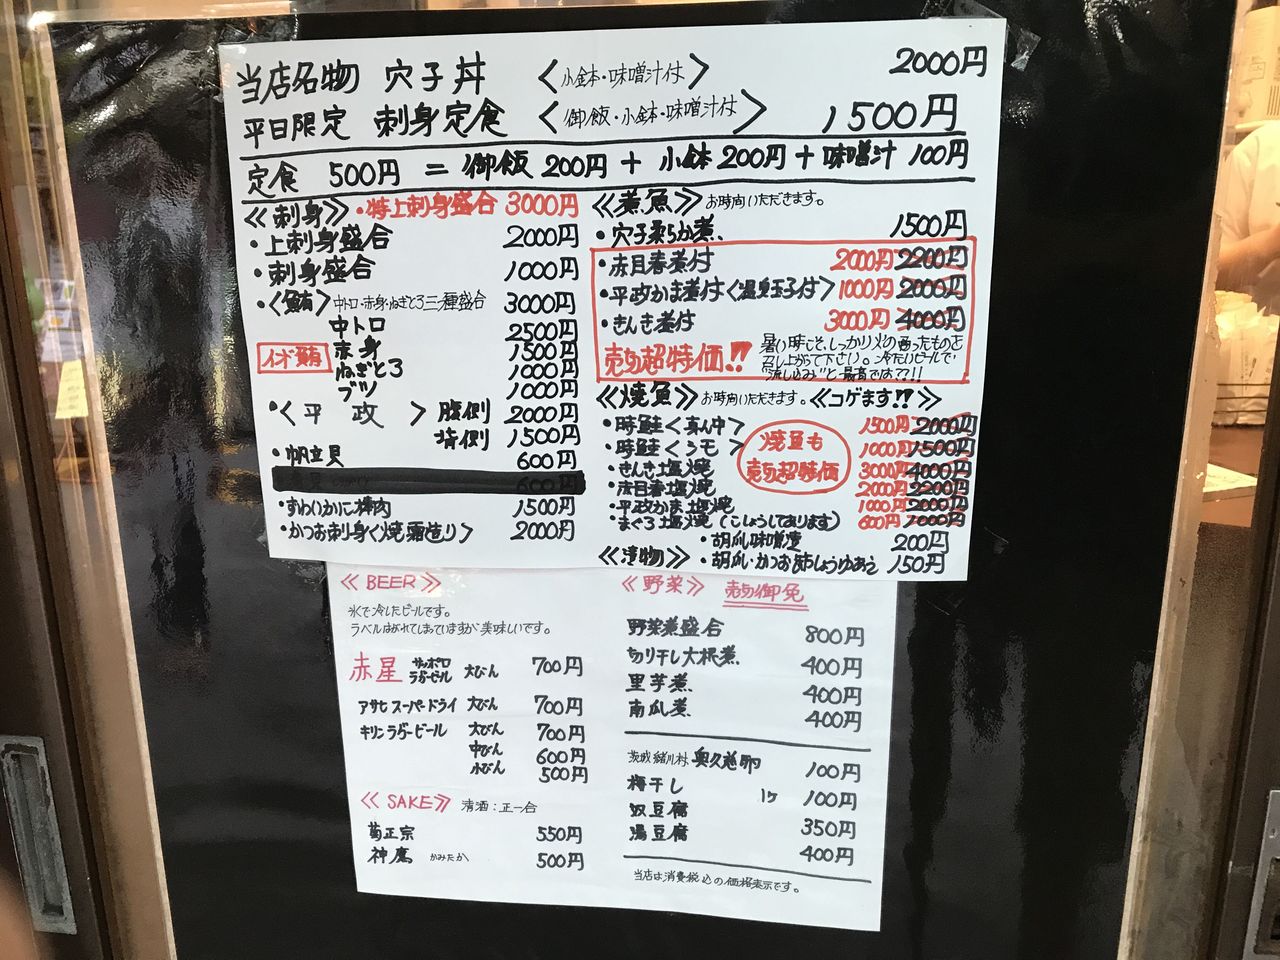 当店名物 穴子丼 〈小鉢・味噌汁付〉 2000円
平日限定 刺身定食 〈御飯・小鉢・味噌汁付〉 1500円
定食 500円 = 御飯 200円 + 小鉢 200円 + 味噌汁 100円
≪刺身≫ ・特上刺身盛合 3000円
・上刺身盛合 2000円
・刺身盛合 1000円
・〈鮪〉中トロ・赤身・ねぎとろ三種盛合 3000円
中トロ 2500円
インド鮪 赤身 1500円
ねぎとろ 1000円
ブツ 1000円
・〈平政〉 腹側 2000円
背側 1500円
・帆立貝 600円
600円
・ずわいかに棒肉 1500円
・かつお刺身〈焼霜造り〉 2000円
≪煮魚≫ お時間いただきます。
・穴子柔らか煮 1500円
・赤目春煮付 2000円 2200円
・平政かま煮付〈温泉玉子付〉 1000円 2000円
・きんき煮付 3000円 4000円
売切超特価!! 暑い時こそ、しっかり火の通ったものを
召し上がて下さい。冷たいビールで
"流し込み"と最高では??!!
≪焼魚≫ お時間いただきます。≪コゲます!!≫
・時鮭〈真ん中〉 1500円 2000円
・時鮭〈うモ〉 1000円 1500円
・きんき塩焼 3000円 4000円
・赤目春塩焼 2000円 2200円
・平政かま塩焼 1000円 2000円
・まぐろ塩焼(こしょうしてあります) 600円 1000円
焼魚も
売切超特価
≪漬物≫ ・胡瓜味噌漬 200円
・胡瓜・かつお節しょうゆあえ 150円
≪BEER≫
氷で冷したビールです。
ラベルはがれてしまっていますが美味しいです。
赤星 サッポロラガービール 大びん 700円
アサヒスーパードライ 大びん 700円
キリンラガービール 大びん 700円
中びん 600円
小びん 500円
≪SAKE≫ 清酒:正一合
菊正宗 550円
神鷹 かみたか 500円
≪野菜≫ 売切御免
野菜煮盛合 800円
切り干し大根煮 400円
里芋煮 400円
南瓜煮 400円
茨城緒川村 奥久慈卵 100円
梅干し 1ケ 100円
奴豆腐 350円
湯豆腐 400円
当店は消費税込の価格表示です。